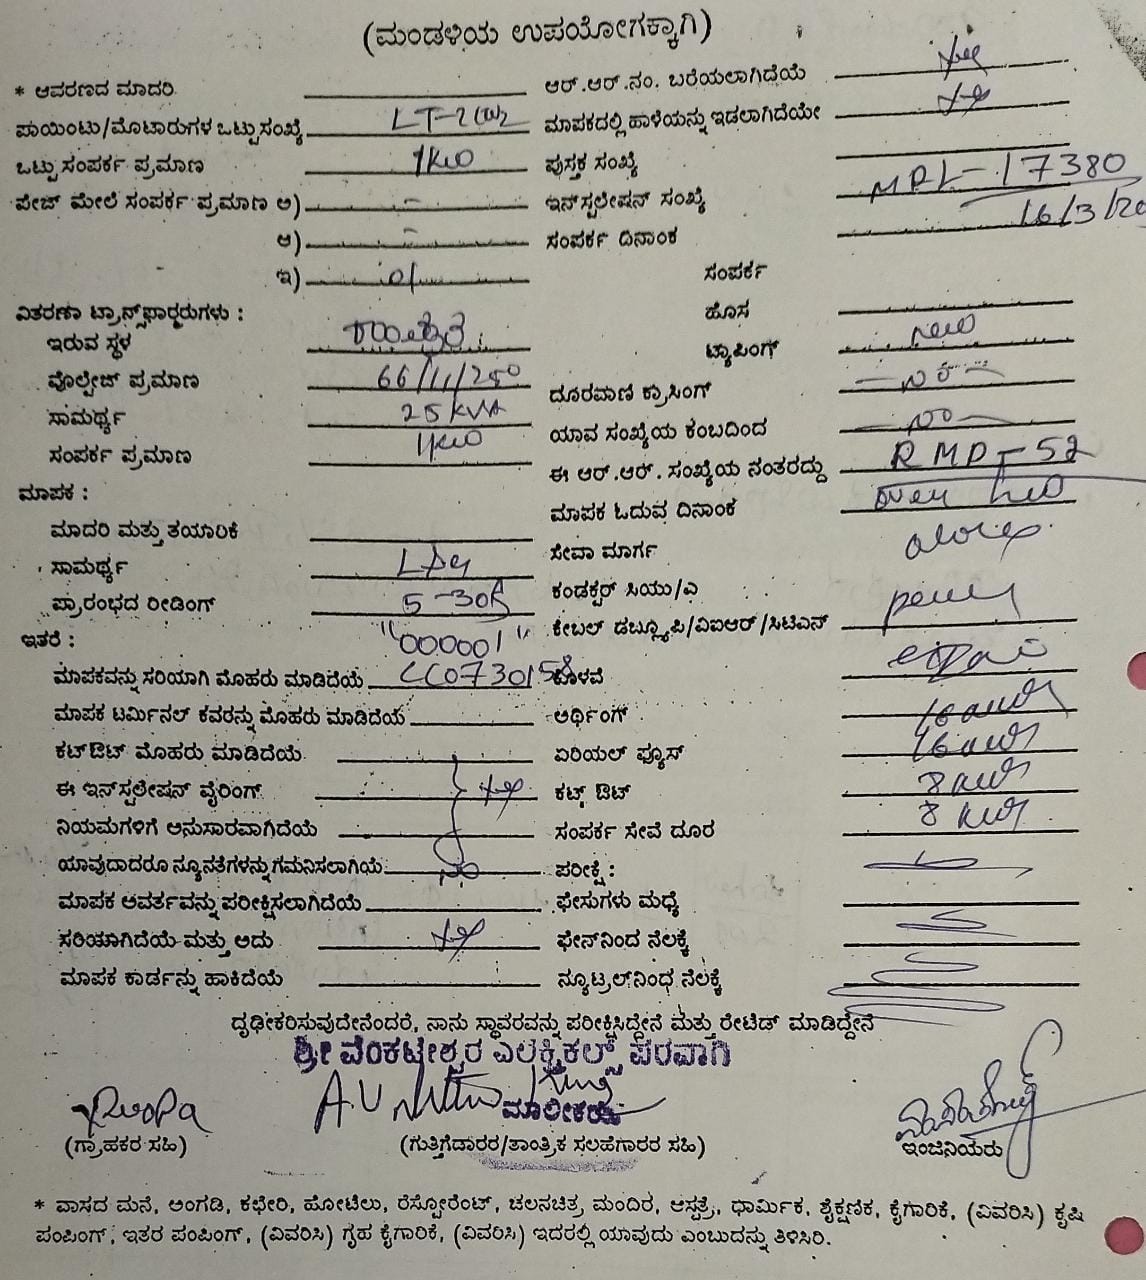 (ಮಂಡಳಿಯ ಉಪಯೋಗಕ್ಕಾಗಿ)
* ಆವರಣದ ಮಾದರಿ
ಪಾಯಿಂಟು/ಮೊಟಾರುಗಳ ಒಟ್ಟು ಸಂಖ್ಯೆ LT-2
ಒಟ್ಟು ಸಂಪರ್ಕ ಪ್ರಮಾಣ 1KW
ಪೇಜ್ ಮೇಲೆ ಸಂಪರ್ಕ ಪ್ರಮಾಣ ಅ) -
ಆ) -
ಇ)
ವಿತರಣಾ ಟ್ರಾನ್ಸ್‌ಫಾರ್ಮರುಗಳು :
ಇರುವ ಸ್ಥಳ
ವೊಲ್ಟೇಜ್ ಪ್ರಮಾಣ 66/11/250
ಸಾಮರ್ಥ್ಯ 25 KVA
ಸಂಪರ್ಕ ಪ್ರಮಾಣ 1KW
ಮಾಪಕ :
ಮಾದರಿ ಮತ್ತು ತಯಾರಿಕೆ
ಸಾಮರ್ಥ್ಯ
ಪ್ರಾರಂಭದ ರೀಡಿಂಗ್ 5-30A
ಇತರೆ : "000001"
ಮಾಪಕವನ್ನು ಸರಿಯಾಗಿ ಮೊಹರು ಮಾಡಿದೆಯೆ
ಮಾಪಕ ಟರ್ಮಿನಲ್ ಕವರನ್ನು ಮೊಹರು ಮಾಡಿದೆಯೆ
ಕಟ್‌ಔಟ್ ಮೊಹರು ಮಾಡಿದೆಯೆ
ಈ ಇನ್‌ಸ್ಟಲೇಷನ್ ವೈರಿಂಗ್ yes
ನಿಯಮಗಳಿಗೆ ಅನುಸಾರವಾಗಿದೆಯೆ
ಯಾವುದಾದರೂ ನ್ಯೂನತೆಗಳನ್ನು ಗಮನಿಸಲಾಗಿಯೆ no
ಮಾಪಕ ಆವರ್ತವನ್ನು ಪರೀಕ್ಷಿಸಲಾಗಿದೆಯೆ
ಸರಿಯಾಗಿದೆಯೆ ಮತ್ತು ಅದು yes
ಮಾಪಕ ಕಾರ್ಡನ್ನು ಹಾಕಿದೆಯೆ
ಆರ್.ಆರ್.ನಂ. ಬರೆಯಲಾಗಿದೆಯೆ yes
ಮಾಪಕದಲ್ಲಿ ಹಾಳೆಯನ್ನು ಇಡಲಾಗಿದೆಯೇ yes
ಪುಸ್ತಕ ಸಂಖ್ಯೆ
ಇನ್‌ಸ್ಟಲೇಷನ್ ಸಂಖ್ಯೆ MPL-17380
ಸಂಪರ್ಕ ದಿನಾಂಕ 16/3/20
ಸಂಪರ್ಕ
ಹೊಸ
ಟ್ಯಾಪಿಂಗ್ new
ದೂರವಾಣಿ ಕ್ರಾಸಿಂಗ್ -no-
ಯಾವ ಸಂಖ್ಯೆಯ ಕಂಬದಿಂದ -no-
ಈ ಆರ್.ಆರ್. ಸಂಖ್ಯೆಯ ನಂತರದ್ದು RMP-52
ಮಾಪಕ ಓದುವ ದಿನಾಂಕ over
ಸೇವಾ ಮಾರ್ಗ
ಕಂಡಕ್ಟರ್ ಸಿಯು/ಎ
ಕೇಬಲ್ ಡಬ್ಲ್ಯೂಪಿ/ವಿಐಆರ್/ಸಿಟಿಎನ್
ಕೊಳವೆ
ಅರ್ಥಿಂಗ್
ಏರಿಯಲ್ ಫ್ಯೂಸ್
ಕಟ್ಸ್ ಔಟ್
ಸಂಪರ್ಕ ಸೇವೆ ದೂರ
ಪರೀಕ್ಷೆ :
ಫೇಸುಗಳು ಮಧ್ಯೆ
ಫೇಸ್‌ನಿಂದ ನೆಲಕ್ಕೆ
ನ್ಯೂಟ್ರಲ್‌ನಿಂಧ ನೆಲಕ್ಕೆ
ದೃಢೀಕರಿಸುವುದೇನೆಂದರೆ, ನಾನು ಸ್ಥಾವರವನ್ನು ಪರೀಕ್ಷಿಸಿದ್ದೇನೆ ಮತ್ತು ರೇಟೆಡ್ ಮಾಡಿದ್ದೇನೆ
ಶ್ರೀ ವೆಂಕಟೇಶ್ವರ ಎಲೆಕ್ಟ್ರಿಕಲ್ಸ್ ಪರವಾಗಿ
ಮಾಲೀಕರು
(ಗ್ರಾಹಕರ ಸಹಿ) (ಗುತ್ತಿಗೆದಾರರ/ತಾಂತ್ರಿಕ ಸಲಹೆಗಾರರ ಸಹಿ) ಇಂಜಿನಿಯರು
* ವಾಸದ ಮನೆ, ಅಂಗಡಿ, ಕಛೇರಿ, ಹೋಟೆಲು, ರೆಸ್ಟೋರೆಂಟ್, ಚಲನಚಿತ್ರ ಮಂದಿರ, ಆಸ್ಪತ್ರೆ, ಧಾರ್ಮಿಕ, ಶೈಕ್ಷಣಿಕ, ಕೈಗಾರಿಕೆ, (ವಿವರಿಸಿ) ಕೃಷಿ
ಪಂಪಿಂಗ್, ಇತರ ಪಂಪಿಂಗ್, (ವಿವರಿಸಿ) ಗೃಹ ಕೈಗಾರಿಕೆ, (ವಿವರಿಸಿ) ಇದರಲ್ಲಿ ಯಾವುದು ಎಂಬುದನ್ನು ತಿಳಿಸಿರಿ.